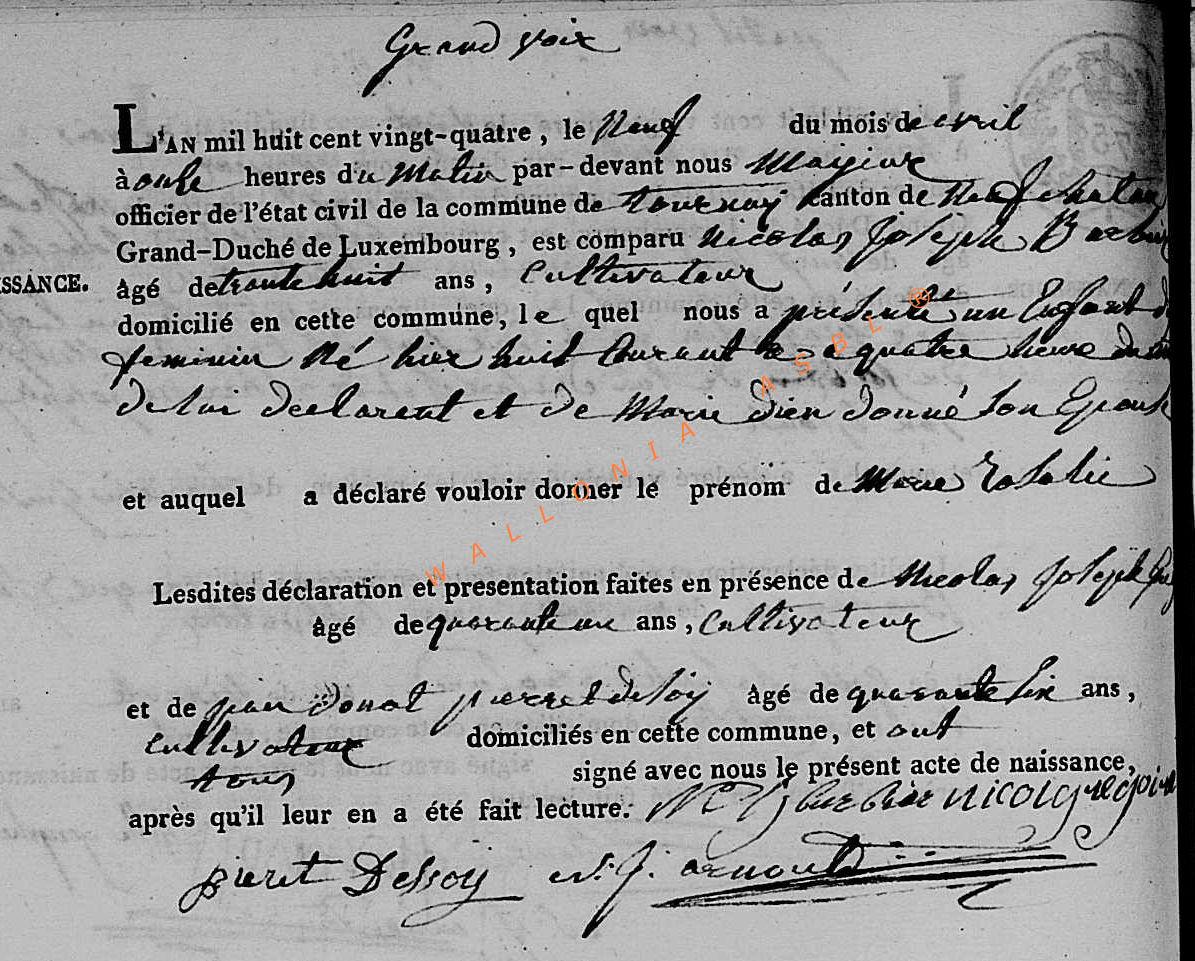 Grand voir
L'AN mil huit cent vingt-quatre, le Neuf du mois de avril
à onze heures du Matin par-devant nous Mayeur
officier de l'état civil de la commune de tournay Canton de Neufchateau
Grand-Duché de Luxembourg, est comparu Nicolas Joseph
ISSANCE. âgé de trente huit ans, Cultivateur
domicilié en cette commune, le quel nous a présenté un Enfant
feminin Né hier huit Courant a quatre heure du
de lui declarent et de Marie dieu donné son Epouse
et auquel a déclaré vouloir donner le prénom de Marie Rosalie
Lesdites déclaration et presentation faites en présence de Nicolas Joseph
âgé de quarante un ans, Cultivateur
et de jean Donat pierret desoy âgé de quarante six ans,
Cultivateur domiciliés en cette commune, et ont
tous signé avec nous le présent acte de naissance,
après qu'il leur en a été fait lecture. nicola gregoire
pieret Dessoy N. J. arnould
WALLONIA ASBL ®